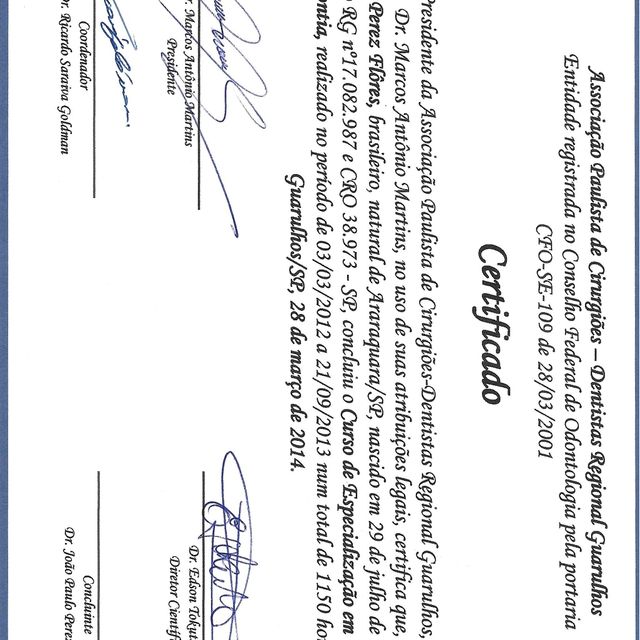 Associação Paulista de Cirurgiões – Dentistas Regional Guarulhos
Entidade registrada no Conselho Federal de Odontologia pela portaria
CFO-SE-109 de 28/03/2001
Certificado
Presidente da Associação Paulista de Cirurgiões-Dentistas Regional Guarulhos,
Dr. Marcos Antônio Martins, no uso de suas atribuições legais, certifica que,
Perez Flôres, brasileiro, natural de Araraquara/SP, nascido em 29 de julho de
RG nº17.082.987 e CRO 38.973 - SP, concluiu o Curso de Especialização em
ontia, realizado no período de 03/03/2012 a 21/09/2013 num total de 1150 ho
Guarulhos/SP, 28 de março de 2014.
Dr. Marcos Antônio Martins
Presidente
Dr. Edson Tokut
Diretor Científ
Coordenador
Dr. Ricardo Saraiva Goldman
Concluinte
Dr. João Paulo Perez